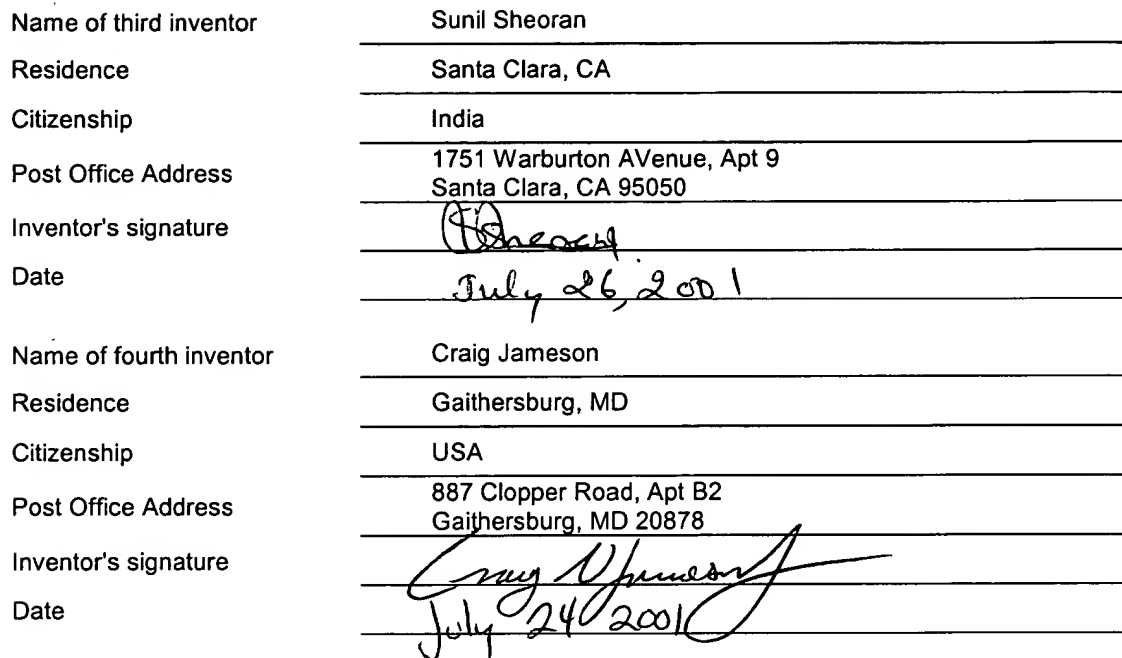 Name of third inventor Sunil Sheoran
Residence Santa Clara, CA
Citizenship India
Post Office Address 1751 Warburton AVenue, Apt 9
Santa Clara, CA 95050
Inventor's signature Sheoran
Date July 26, 2001
Name of fourth inventor Craig Jameson
Residence Gaithersburg, MD
Citizenship USA
Post Office Address 887 Clopper Road, Apt B2
Gaithersburg, MD 20878
Inventor's signature Craig Jameson
Date July 24 2001